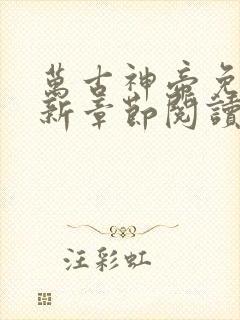 萬古神帝免
新章節閱讀
汪彩虹